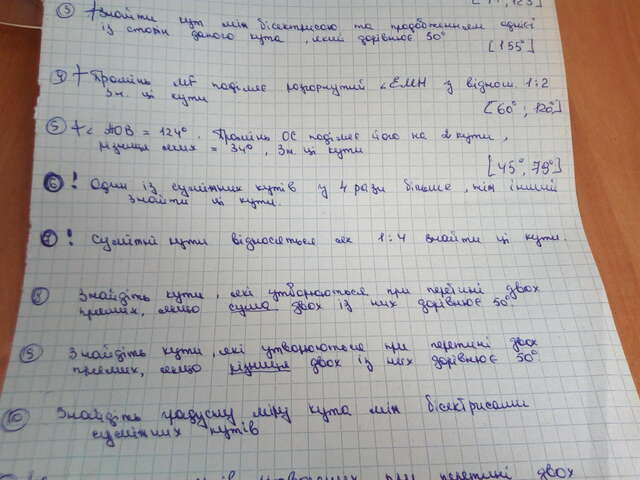 3 + Знайти кут між бісектрисою та продовженням однієї
із сторін даного кута, який дорівнює 50°
[155°]
4 + Промінь MF поділяє розгорнутий ∠EMH у віднош. 1:2
Зн. ці кути
[60°; 120°]
5 + ∠ AOB = 124°. Промінь OC поділяє його на 2 кути,
різниця яких = 34°, Зн. ці кути
[45°, 79°]
6 ! Один із суміжних кутів у 4 рази більше, ніж інший
Знайти ці кути.
7 ! Суміжні кути відносяться як 1:4 знайти ці кути.
8 Знайдіть кути, які утворюються при перетині двох
прямих, якщо сума двох із них дорівнює 50°
9 Знайдіть кути, які утворюються при перетині двох
прямих, якщо різниця двох із них дорівнює 50°
10 Знайдіть градусну міру кута між бісектрисами
суміжних кутів
при перетині двох